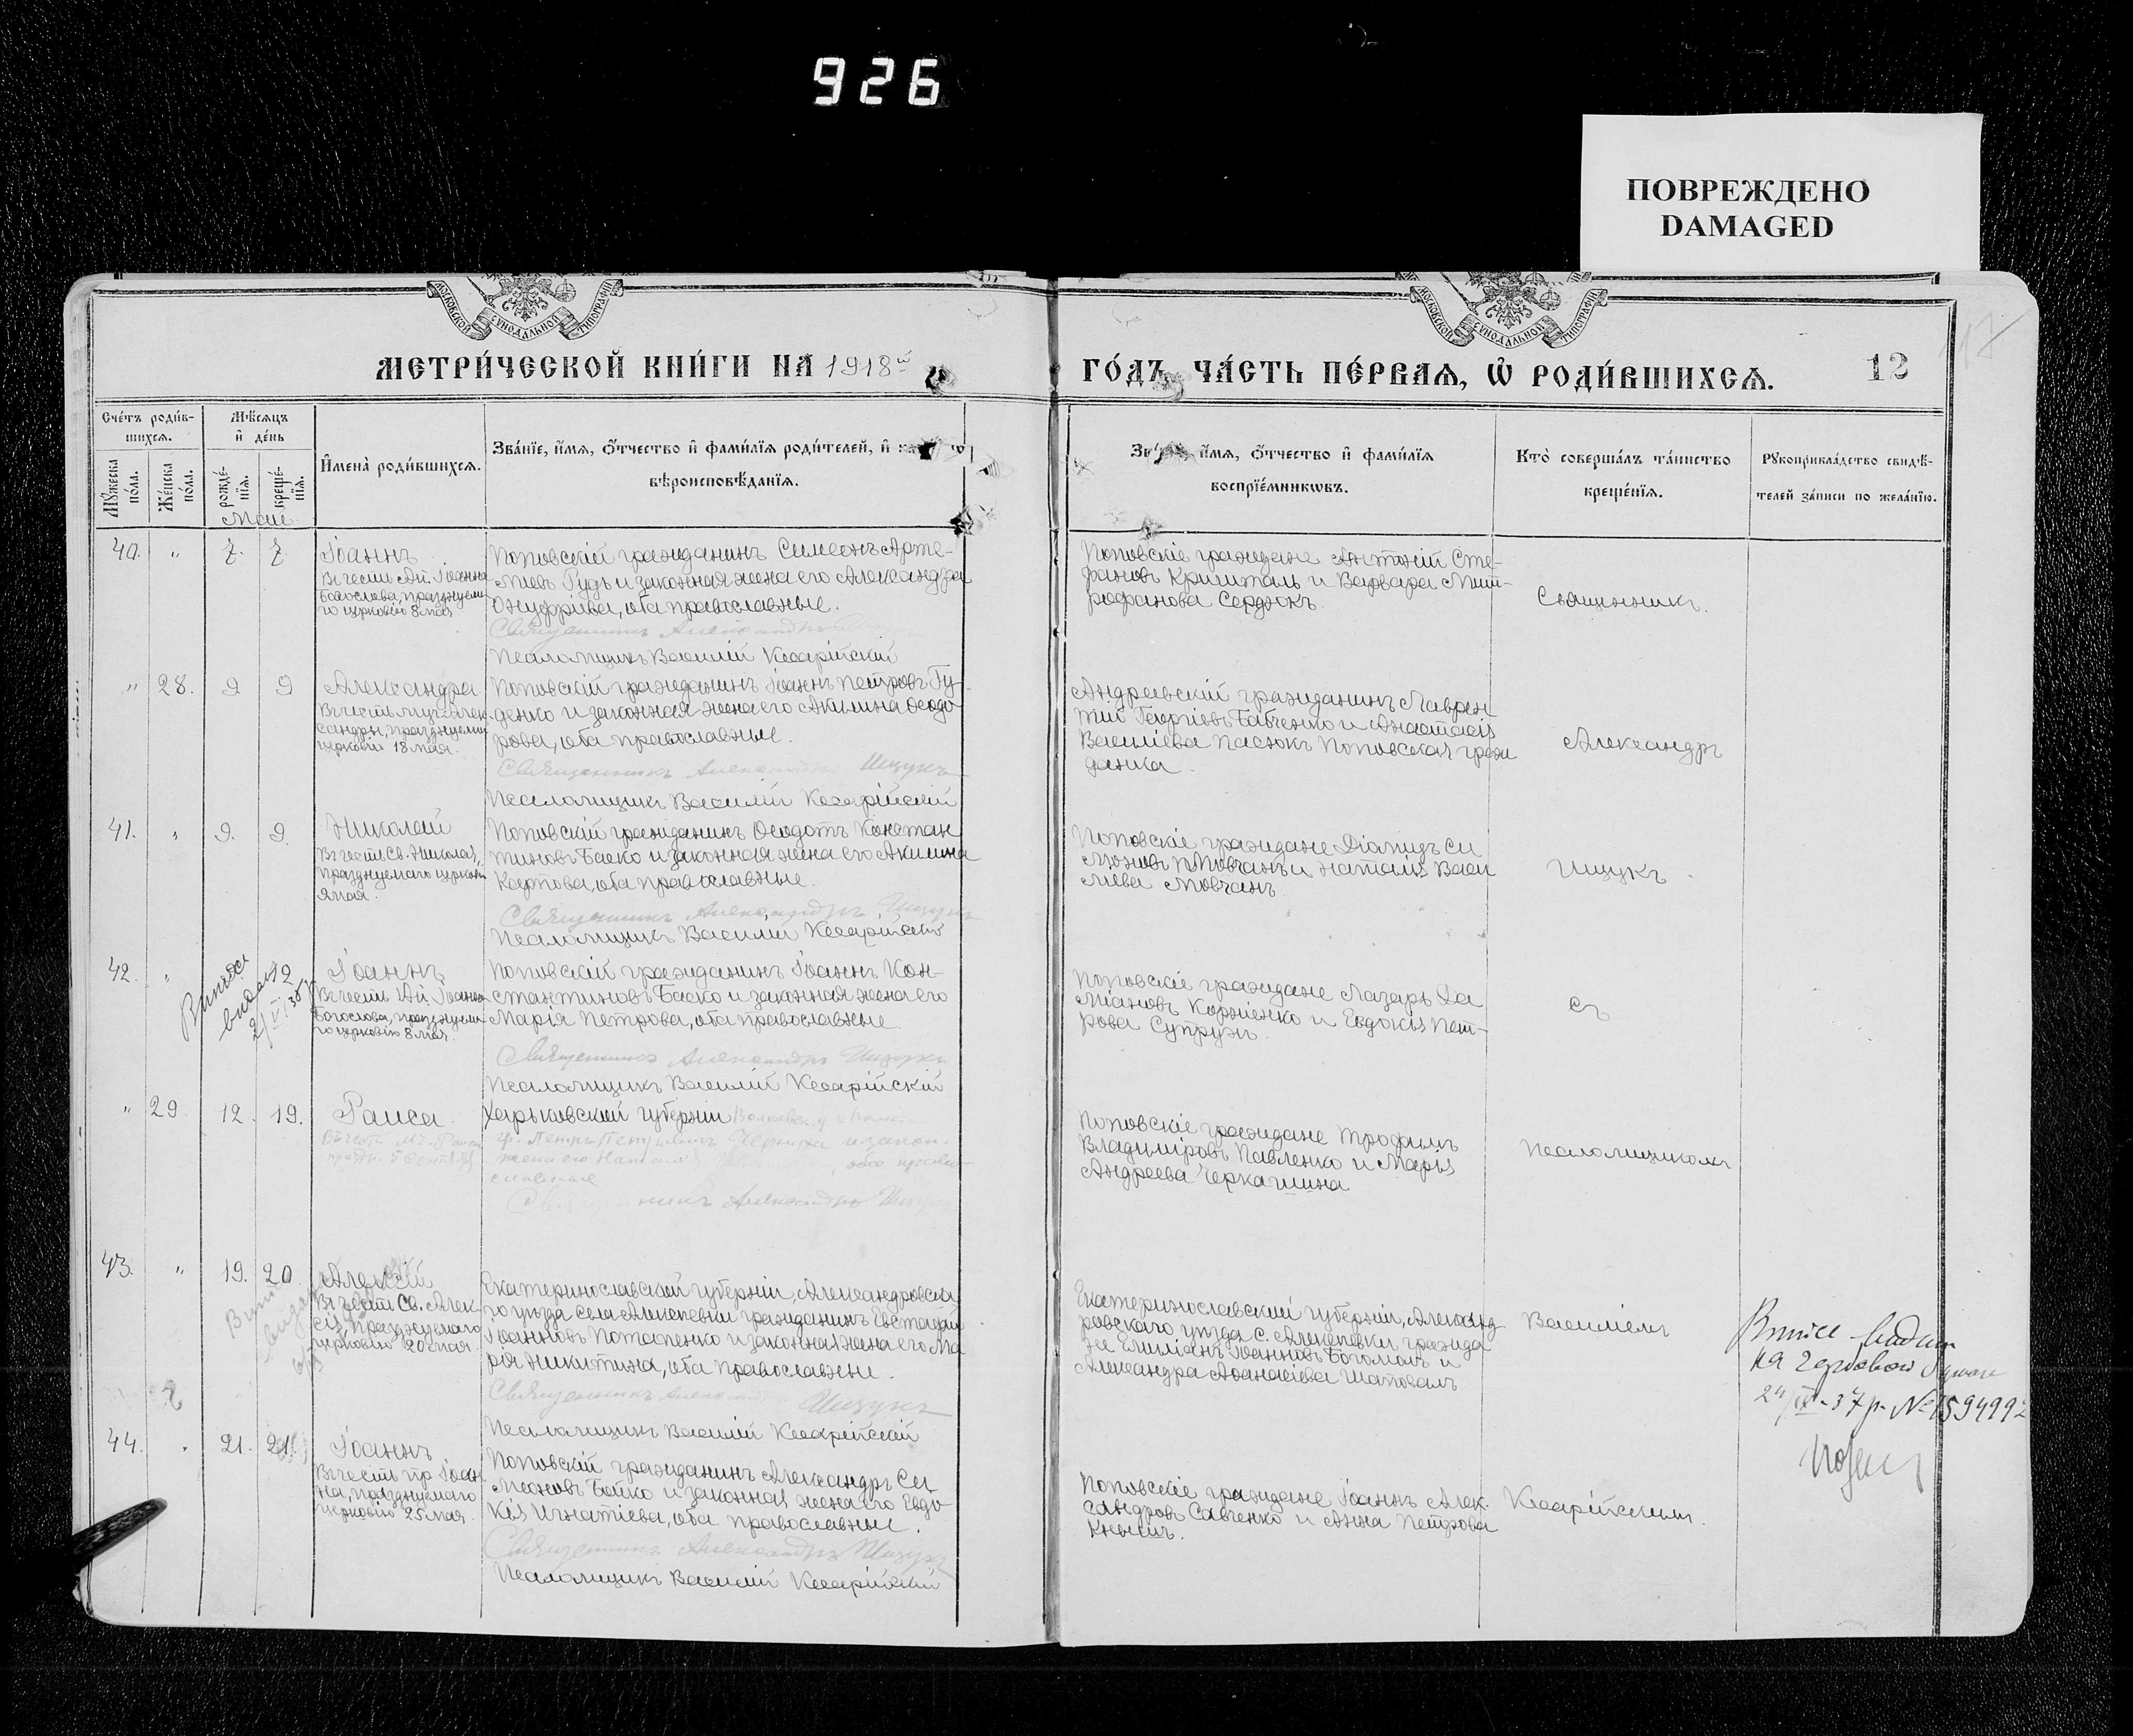 926
ПОВРЕЖДЕНО
DAMAGED
МОСКОВСКОЙ СУНОДАЛЬНОЙ ТИПОГРАФІИ
МОСКОВСКОЙ СУНОДАЛЬНОЙ ТИПОГРАФІИ
МЕТРИ́ЧЕСКОЙ КНИ́ГИ НА 1918й
ГО́ДЪ, ЧА́СТЬ ПЕ́РВАЯ, Ѿ РОДИ́ВШИХСЯ.
12
17
Сче́тъ роди́в-
шихся.
Мѣ́сяцъ
и҆ де́нь
Мꙋ́жеска
по́ла.
Же́нска
по́ла.
рожде́-
нїя.
креще́-
нїя.
И҆мена̀ роди́вшихся.
Зва́нїе, и҆́мя, ѻ҆́тчество и҆ фами́лїя роди́телей, и҆
вѣроисповѣ́данїя.
и҆́мя, ѻ҆́тчество и҆ фами́лїя
воспрїе́мникѡвъ.
Кто̀ соверша́лъ та́инство
креще́нїя.
Рꙋкоприкла́дство свидѣ́-
телей за́писи по жела́нїю.
Маи
40. " 7. 7. Іоаннъ
Въ честь Ап. Іоанна
Богослова, празднуема
го церковію 8 мая
Поповскій гражданинъ Симеонъ Арте-
міевъ Гудь и законная жена его Александра
Онуфріева, оба православные.
Священникъ Александръ
Псаломщикъ Василій Кесарійскій
Поповскіе граждане Антоній Сте-
фановъ Кришталь и Варвара Мит-
рофанова Сердюкъ.
Священникъ
" 28. 9 9 Александра
Въ честь муч. Алек
сандры, празднуемой
церковію 18 мая.
Поповскій гражданинъ Іоаннъ Петровъ Гу-
денко и законная жена его Акилина Ѳеодо-
рова, оба православные.
Священникъ Александръ Ищукъ
Псаломщикъ Василій Кесарійскій
Андреевскій гражданинъ Лаврен
тій Георгіевъ Бабченко и Анастасія
Василіева Пасюкъ Поповская граж
данка.
Александръ
41. " 9. 9. Николай
Въ честь Св. Николая,
празднуемаго церковію
9 мая.
Поповскій гражданинъ Ѳеодотъ Констан
тиновъ Баско и законная жена его Акилина
Карпова, оба православные.
Священникъ Александръ Ищукъ
Псаломщикъ Василій Кесарійскій
Поповскіе граждане Діомидъ Си
моновъ Мовчанъ и Наталія Васи
ліева Мовчанъ.
Ищукъ
42. " 12 Іоаннъ
Въ честь Ап. Іоанна
Богослова, празднуема
го церковію 8 мая.
Поповскій гражданинъ Іоаннъ Кон-
стантиновъ Баско и законная жена его
Марія Петрова, оба православные.
Священникъ Александръ Ищукъ
Псаломщикъ Василій Кесарійскій
Поповскіе граждане Лазарь Да
міановъ Корніенко и Евдокія Пет-
рова Супрунъ.
съ
" 29. 12. 19. Раиса
Въ честь мч. Раисы
праздн. 5 сентября
Харьковской губерніи
жена его Наталія оба право-
славные
Священникъ Александръ Ищукъ
Поповскіе граждане Трофимъ
Владиміровъ Павленко и Марія
Андреева Черкашина
Псаломщикомъ
43. " 19. 20. Алексій
Въ честь Св. Алек-
сія, празднуемаго
церковію 20 мая.
Екатеринославской губерніи, Александровска
го уѣзда села Алексѣевки гражданинъ Евстафій
Іоанновъ Потапенко и законная жена его Ма
рія Никитина, оба православные.
Священникъ Александръ Ищукъ
Псаломщикъ Василій Кесарійскій
Екатеринославской губерніи, Александ
ровскаго уѣзда с. Алексѣевки гражда
не Емиліанъ Іоанновъ Богомолъ и
Александра Аѳанасіева Шаповалъ
Василіемъ
44. " 21. 21. Іоаннъ
Въ честь пр. Іоан
на, празднуемаго
церковію 25 мая.
Поповскій гражданинъ Александръ Си
меоновъ Бойко и законная жена его Евдо
кія Игнатіева, оба православные.
Священникъ Александръ Ищукъ
Псаломщикъ Василій Кесарійскій
Поповскіе граждане Іоаннъ Алек-
сандровъ Савченко и Анна Петрова
Кнышъ.
Кесарійскимъ.